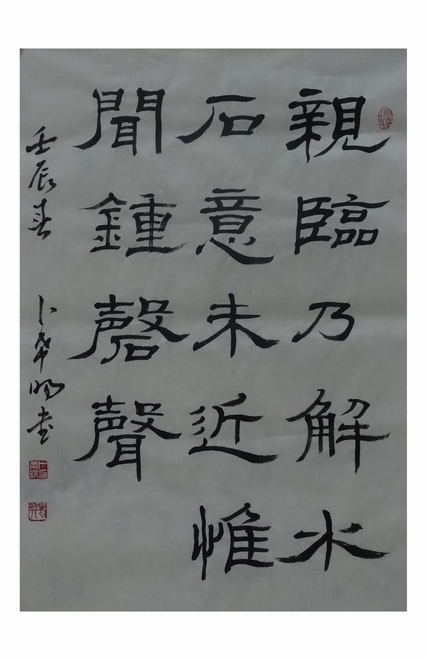 親臨乃解水
石意未近惟
聞鍾磬聲
壬辰春 卜希暘書